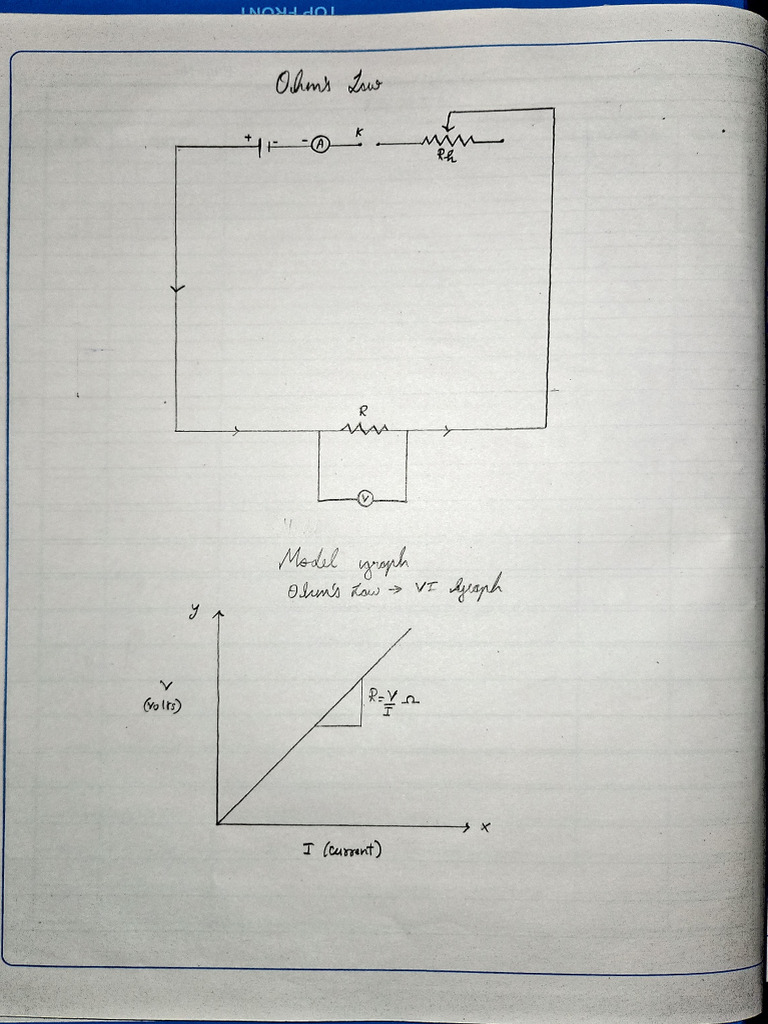 TOP FRONT
Ohm's Law
+ - - A K
Rh
R
V
Model graph
Ohm's Law → VI Graph
y
V
(volts)
R = V/I Ω
x
I (current)